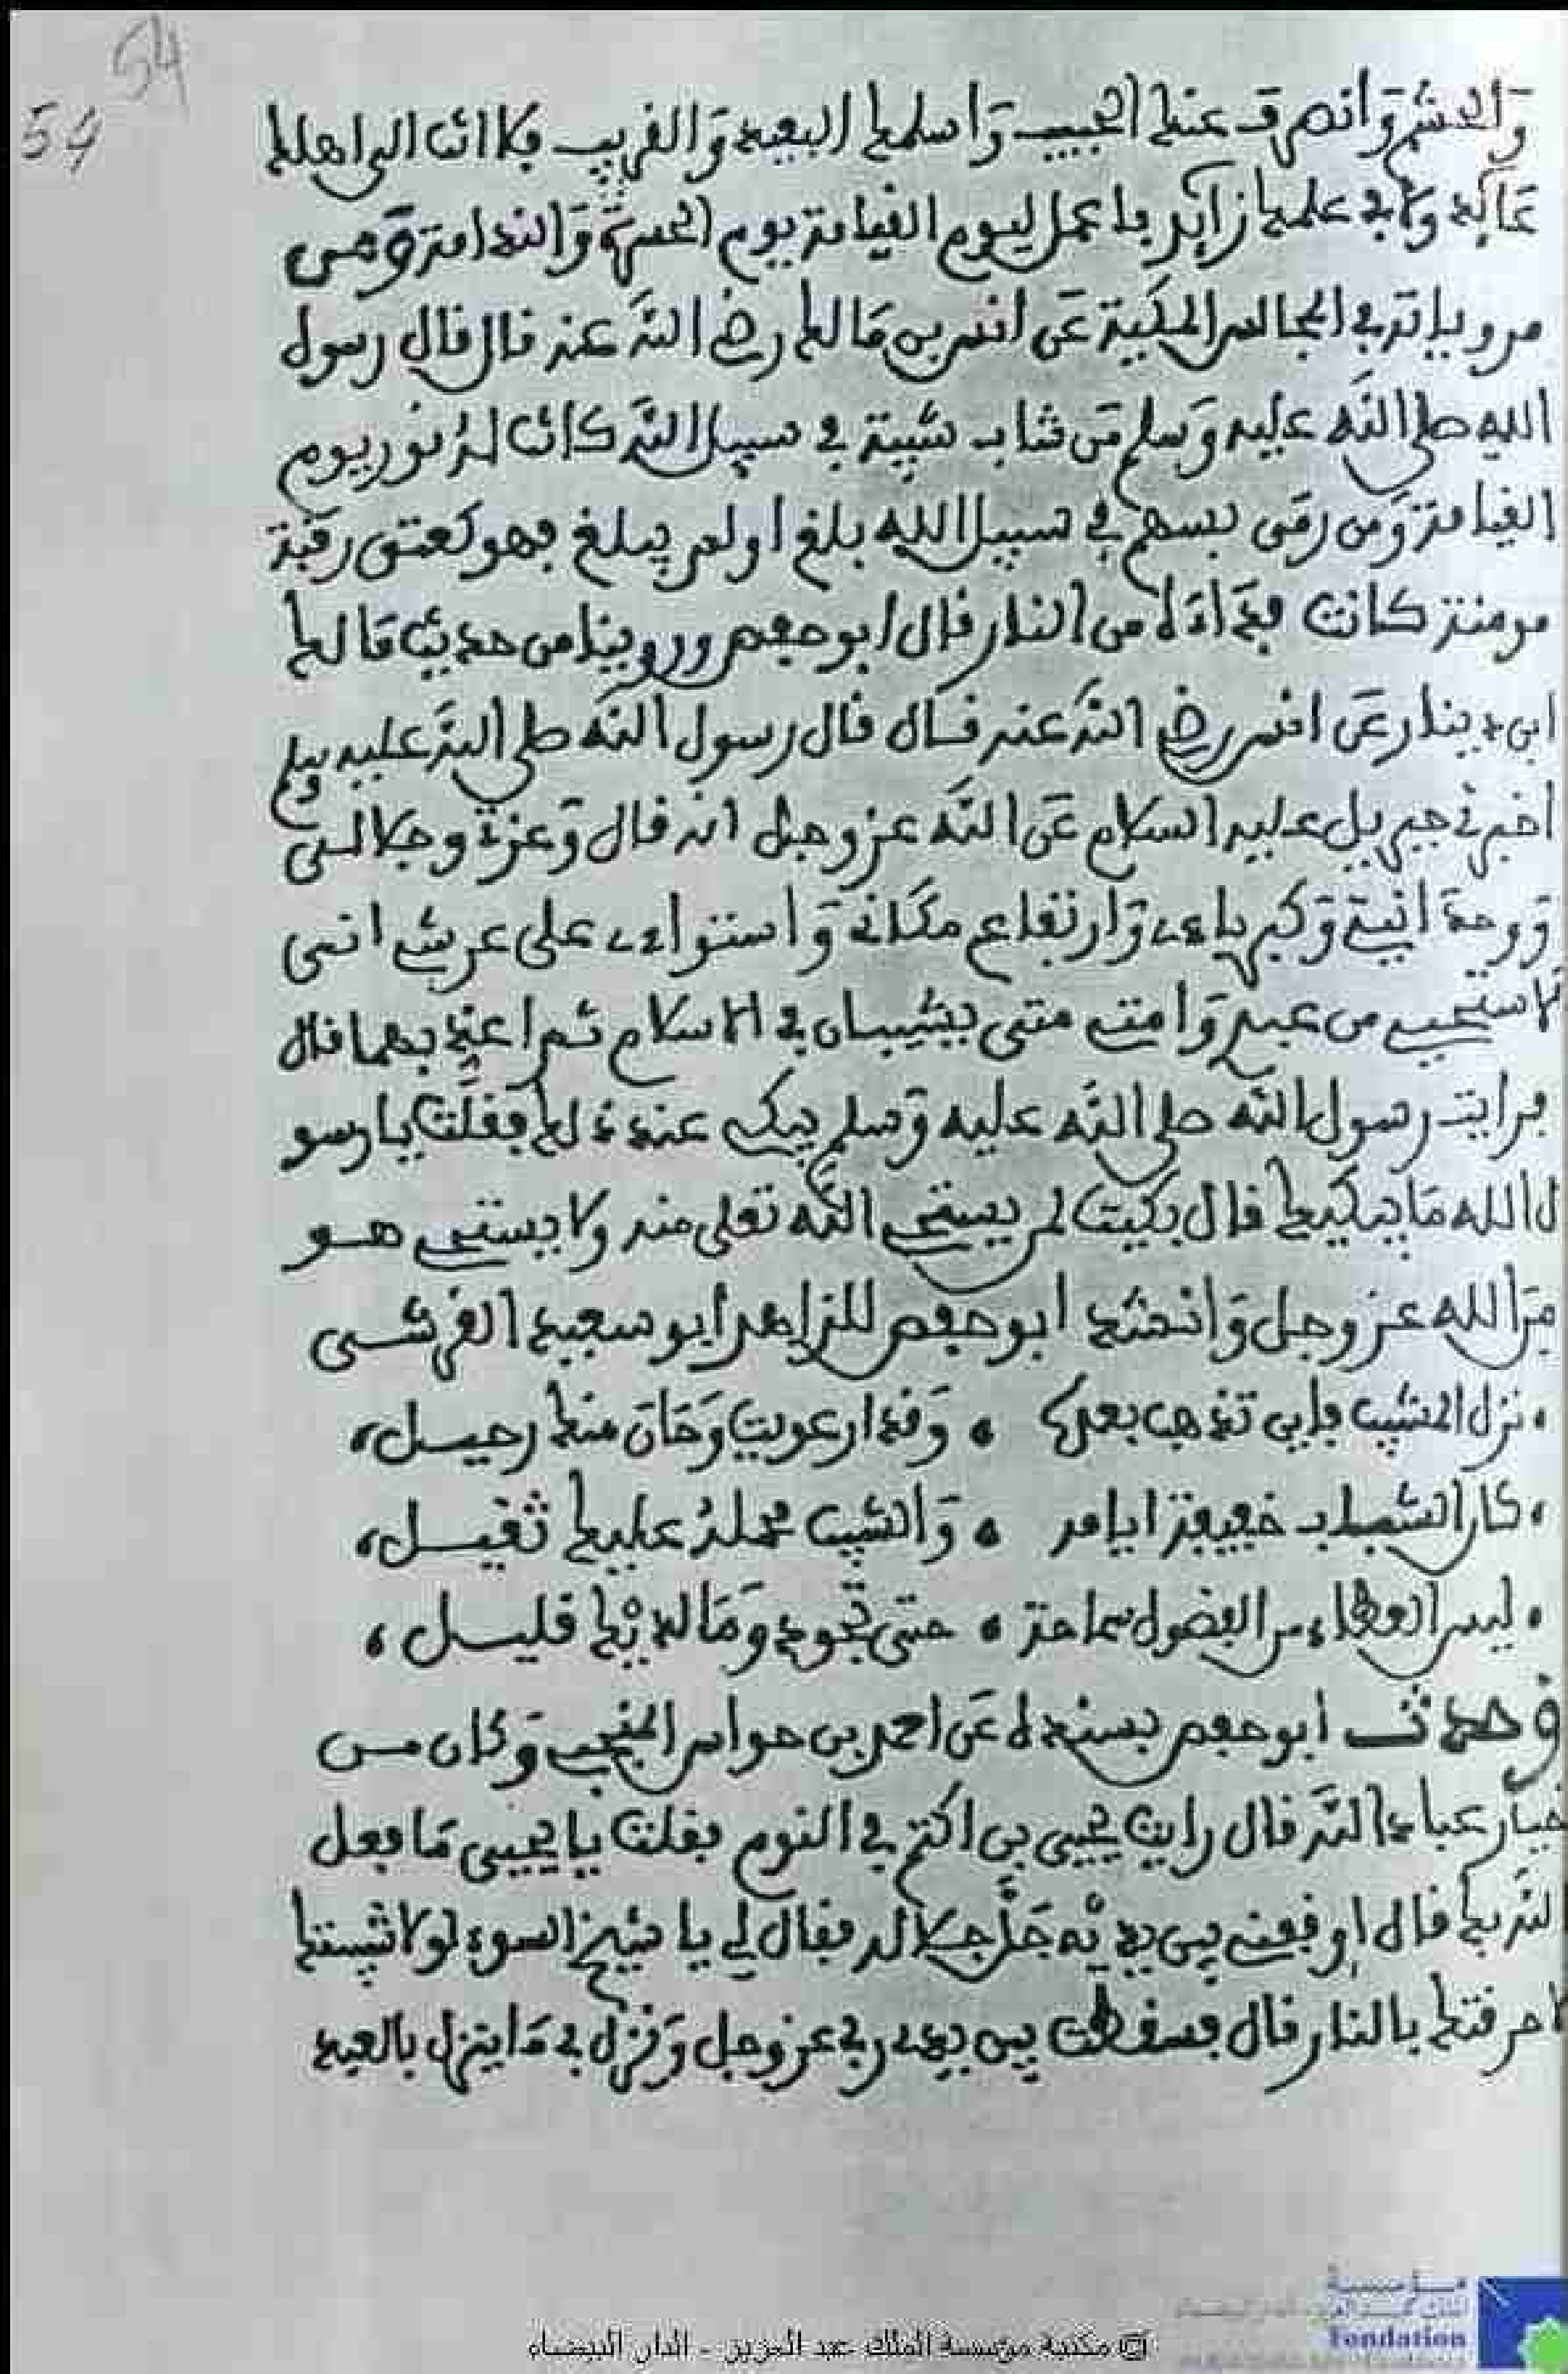 54
54
وَالحشم وَانصرف عنك الحبيب وَاسلمك البعيد وَالقريب فلا انت الى اهلك
عَائد ولا في عملك زايد فاعمل ليوم القيامة يوم الحسرة وَالندامة وَمن
مروياته في المجالس المكية عَن انس بن مَالك رضي اللَّه عنه قال قال رسول
الله صلى اللَّه عليه وَسلم مَن شاب شيبة في سبيل اللَّه كانت لهُ نور يوم
القيامة وَمن رمَى بسهم في سبيل الله بلغ او لم يبلغ فهو كعتق رقبة
مومنة كانت فدَاءَه من النار قال ابو حفص وروينا من حديث مَالك
ابن دينار عَن انس رضي اللَّه عنه قال قال رسول اللَّه صلى اللَّه عليه وسلم
اخبرني جبريل عليه السلام عَن اللَّه عز وجل انه قال وَعزتي وجلالي
وَوحدَانيتي وَكبرياءي وَارتفاع مكَاني وَاستواءي على عرشي اني
لاستحيي من عبدي وَامتي متى يشيبان في الاسلام ثم اعذبهما قال
فرايت رسول اللَّه صلى اللَّه عليه وَسلم يبكي عند ذلك فقلت يا رسو
ل الله مَا يبكيك قال بكيت لمن يستحي اللَّه تعلى منه ولا يستحي هو
مِن الله عز وجل وَانشد ابو حفص للزاهد أبو سعيد القرشي
، نزل المشيب فاين تذهب بعده ، وَقد ارعويت وَحَان منك رحيل،
، كان الشباب خفيفة ايامه ، وَالشيب محمله عليك ثقيل،
، ليس العطاء من الفضول سماحة ، حتى تجود وَمَا لديْك قليل،
وحدث ابو حفص بسنده عَن احمد بن حواس وَكان من
خيار عباد اللَّه قال رايت يحيى بن اكثم في النوم فقلت يا يحيى مَا فعل
اللَّه بك قال اوقفني بين يديْه جَلَّ جلاله فقال لي يا شيخ السوء لولا شيبتك
لاحرقتك بالنار قال فسقطت بين يدي ربي عز وجل وَنزل بي مَا ينزل بالعبد
مؤسسة
Fondation
© مكتبة مؤسسة الملك عبد العزيز - الدار البيضاء